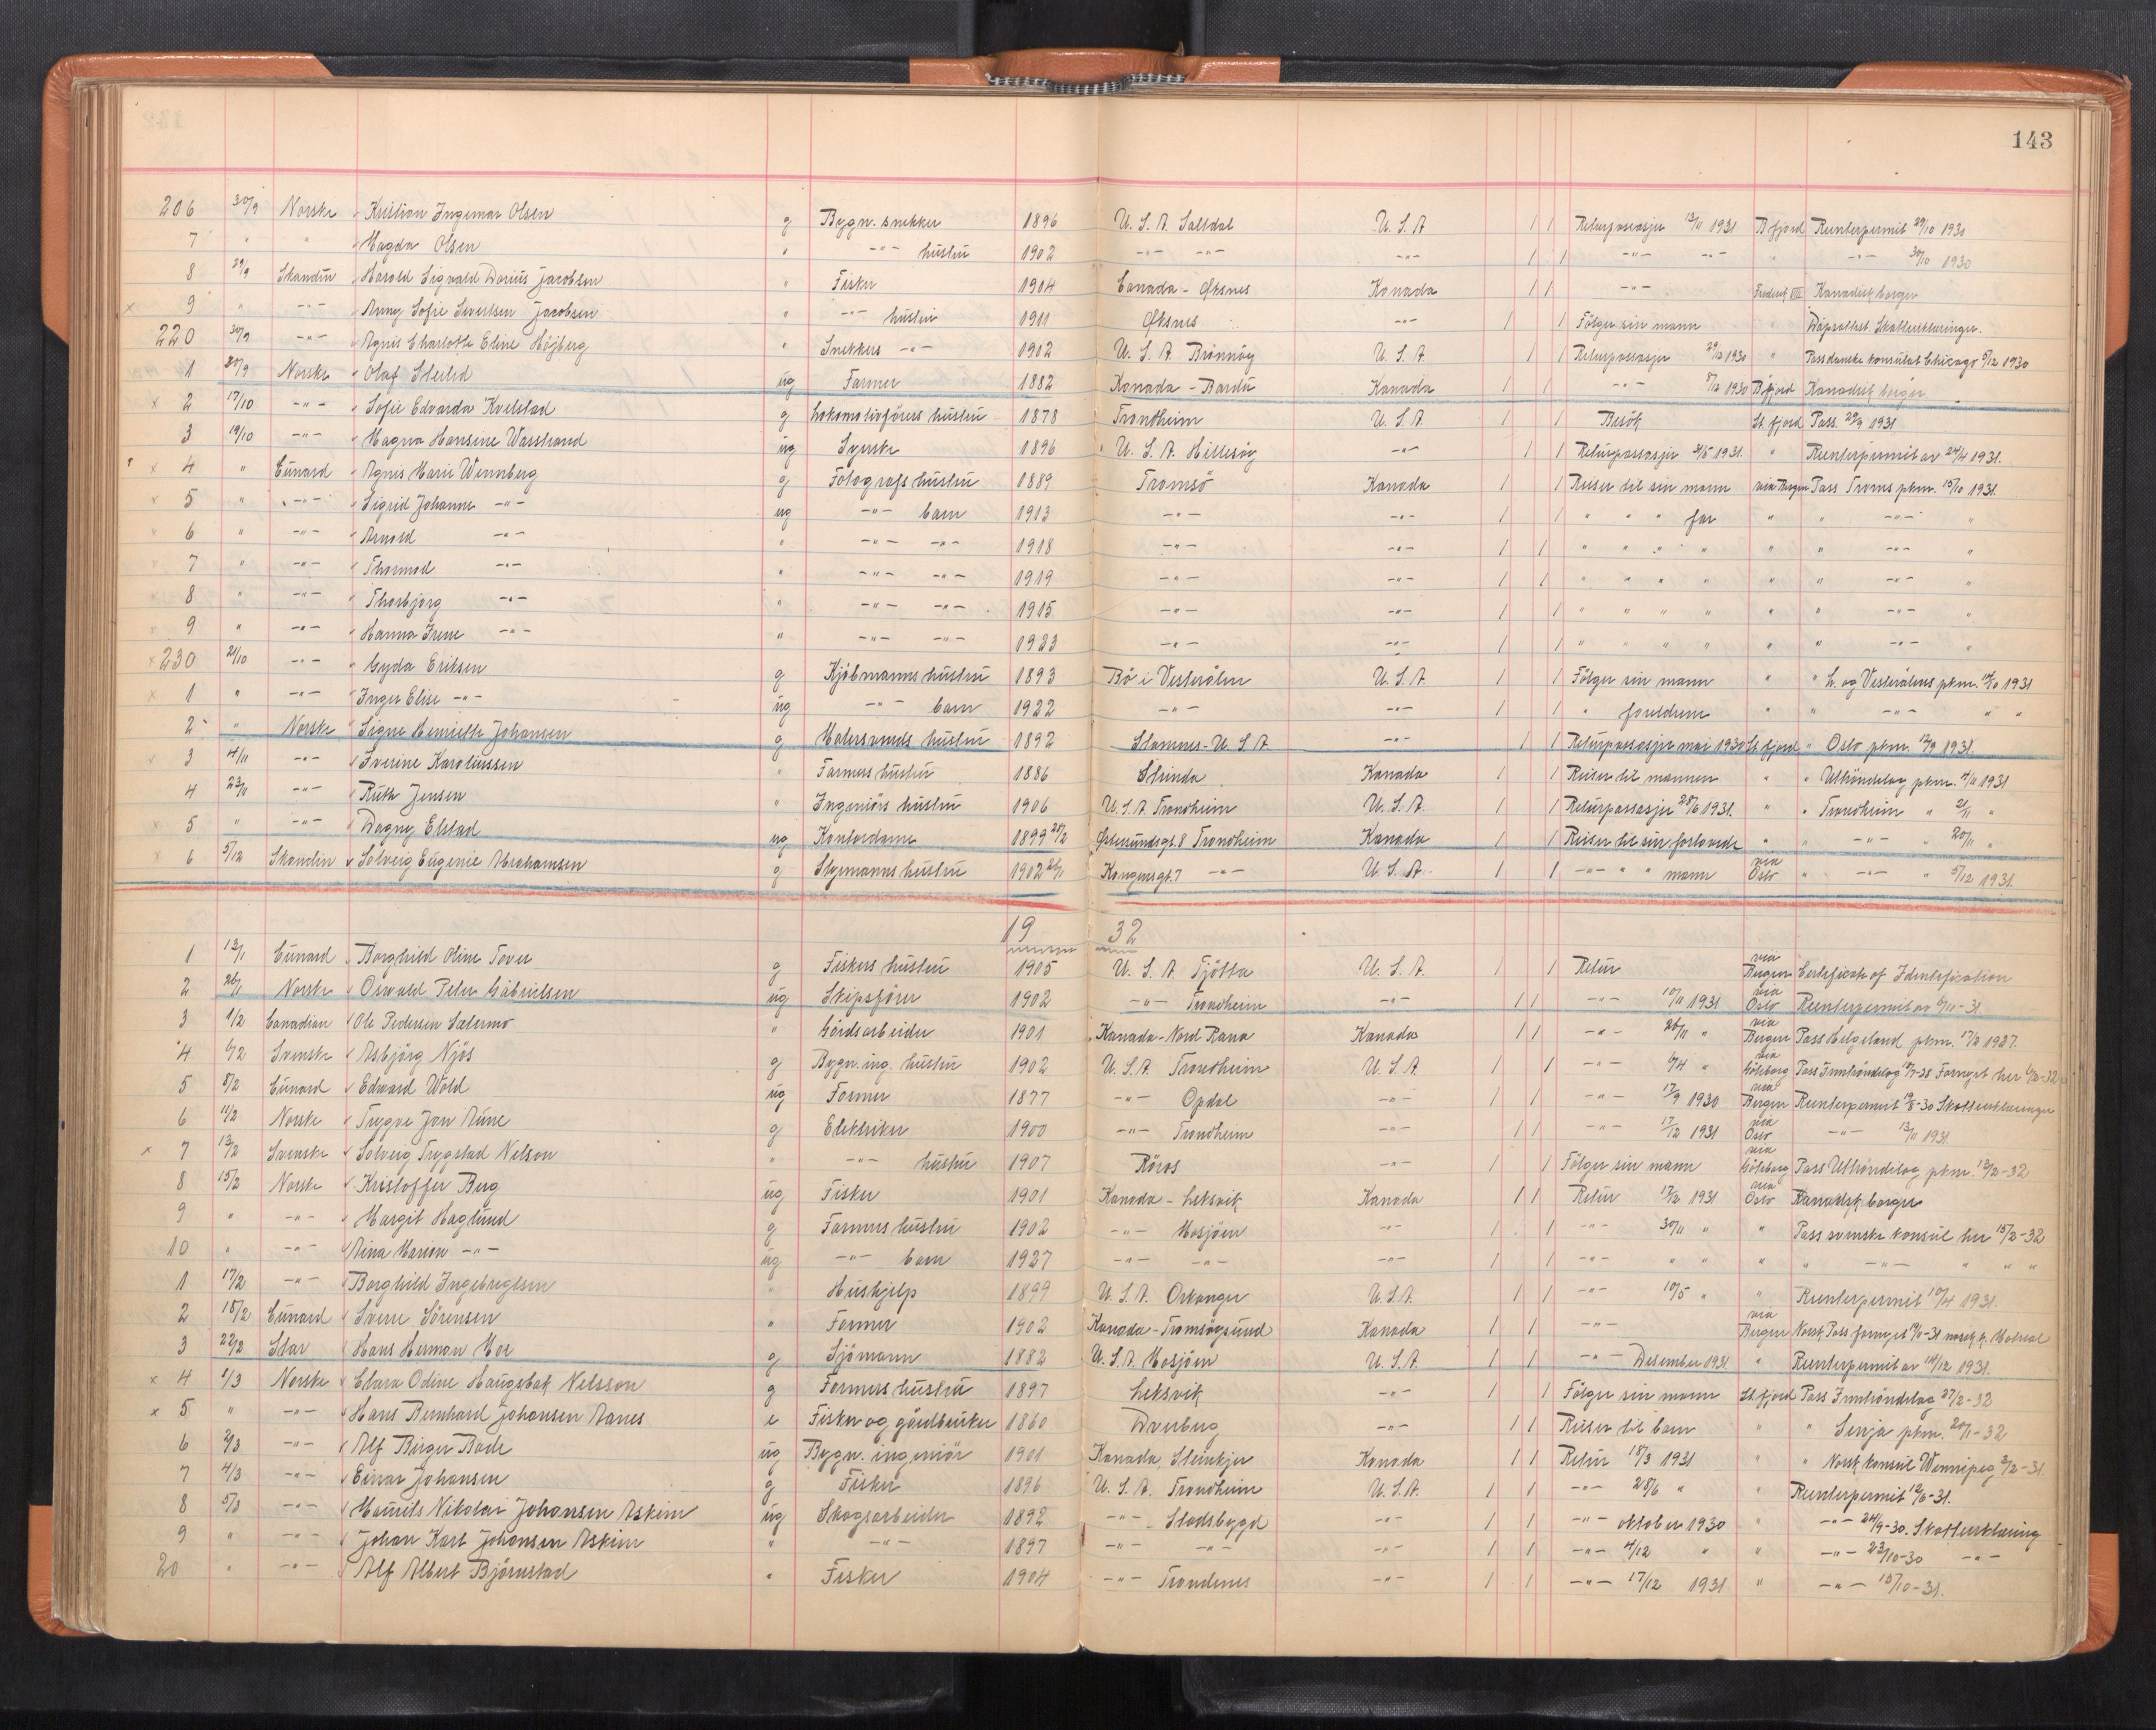 143
206 30/9 Norske Kristian Ingemar Olsen g Bygn. snekker 1896 U.S.A. Saltdal U.S.A 1 1 Returpassasjer 13/11 1931 B.fjord Reenterpermit 29/10 1930
7 " " Magda Olsen " -"- hustru 1902 -"- -"- -"- 1 1 -"- -"- " -"- 30/10 1930
8 29/9 Skandin Harald Sigvald Darius Jacobsen " Fisker 1904 Canada - Øksnes Kanada 1 1 -"- Frederik VIII Kanadisk borger
x 9 " -"- Anny Sofie Sivertsen Jacobsen " -"- hustru 1911 Øksnes -"- 1 1 Följer sin mann " Dåpsattest. Skatteerklæringer.
220 30/9 -"- Agnes Charlotte Eline Höjberg " Snekkers -"- 1902 U.S.A. Brönnöy U.S.A. 1 1 Returpassasjer 29/12 1930 " Pass danske konsulat Chicago 5/12 1930
1 20/9 Norske Olaf Steilid ug Farmer 1882 Kanada - Bardu Kanada 1 1 -"- 8/12 1930 B.fjord Kanadisk borger
x 2 17/10 -"- Sofie Edvarda Kvelstad g Lokomotivförers hustru 1878 Trondheim U.S.A. 1 1 Besök St.fjord Pass. 29/9 1931
3 19/10 -"- Magna Hansine Warstrand ug Syerske 1896 U.S.A. Hillesöy -"- 1 1 Returpassasjer 31/5 1931. " Reenterpermit av 24/4 1931.
x 4 " Cunard Agnes Marie Wennberg g Fotografs hustru 1889 Tromsö Kanada 1 1 Reiser til sin mann via Bergen Pass Troms pkm. 15/10 1931.
x 5 " -"- Sigrid Johanne -"- ug -"- barn 1913 -"- -"- 1 1 " " " far " " -"- "
x 6 " -"- Arnold -"- " -"- -"- 1918 -"- -"- 1 1 " " " " " " -"- "
x 7 " -"- Thormod -"- " -"- -"- 1919 -"- -"- 1 1 " " " " " " -"- "
x 8 " -"- Thorbjorg -"- " -"- -"- 1915 -"- -"- 1 1 " " " " " " -"- "
x 9 " -"- Hanna Irene -"- " -"- -"- 1923 -"- -"- 1 1 " " " " " " -"- "
x 230 21/10 -"- Gyda Eriksen g Kjöbmanns hustru 1893 Bö i Vesterålen U.S.A. 1 1 Fölger sin mann " " L. og Vesterålens pkm. 1931
x 1 " -"- Inger Elise -"- ug -"- barn 1922 -"- -"- 1 1 " foreldrene " " -"- " "
2 " Norske Signe Henriette Johansen g Matersvends hustru 1892 Stamnes - U.S.A. -"- 1 1 Returpassasjer mai 1930 St.fjord " Oslo pkm. 12/9 1931.
x 3 4/11 -"- Iverine Karoliussen " Farmers hustru 1886 Strinda Kanada 1 1 Reiser til mannen " " Uttröndelag pkm. 4/11 1931
4 23/11 -"- Ruth Jensen " Ingeniörs hustru 1906 U.S.A. Trondheim U.S.A. 1 1 Returpassasjer 28/6 1931. " " Trondheim " 21/11 "
x 5 " -"- Dagny Elstad ug Kontordame 1899 28/2 Östersundsgt. 8 Trondheim Kanada 1 1 Reiser til sin forlovede " " -"- " 20/11 "
x 6 5/12 Skandin Solveig Eugenie Abrahamsen g Styrmanns hustru 1902 26/1 Kongensgt. 7 -"- U.S.A. 1 1 -"- " " mann via Oslo " -"- " 5/12 1931.
19 32
1 13/1 Cunard Borghild Oline Tover g Fiskers hustru 1905 U.S.A. Tjötta U.S.A. 1 1 Retur via Bergen Certeficate of Identefication
2 26/1 Norske Oswald Peter Gabrielsen ug Skipsförer 1902 -"- Trondheim -"- 1 1 -"- 10/11 1931 via Oslo Reenterpermit av 6/11-31.
3 1/2 Canadian Ole Pedersen Salermo " Gårdsarbeider 1901 Kanada - Nord Rana Kanada 1 1 -"- 26/11 " via Bergen Pass Helgeland pkm. 17/2 1927.
4 6/2 Svenske Asbjörg Njös g Bygn. ing. hustru 1902 U.S.A. Trondheim U.S.A 1 1 -"- 6/4 " via Göteborg Pass Inntröndelag 28 Fornyet her 6/2-32
5 8/2 Cunard Edward Wold ug Farmer 1877 -"- Opdal -"- 1 1 -"- 17/9 1930 via Bergen Reenterpermit 19/8-30 Skatteerklæringer
6 11/2 Norske Trygve Jon Aune g Elektriker 1900 -"- Trondheim -"- 1 1 -"- 17/12 1931 via Oslo -"- 13/11 1931.
x 7 13/2 Svenske Solveig Trygstad Nelson " -"- hustru 1907 Röros -"- 1 1 Fölger sin mann via Göteborg Pass Uttröndelag pkm. 12/2-32
8 15/2 Norske Kristoffer Berg ug Fisker 1901 Kanada - Leksvik Kanada 1 1 Retur 17/2 1931 via Oslo Kanadisk borger
9 " -"- Margit Haglund g Farmers hustru 1902 -"- Mosjöen -"- 1 1 -"- 30/11 " " Pass svenske konsul her 15/2-32
10 " -"- Nina Marion -"- ug -"- barn 1927 -"- -"- -"- 1 1 -"- " " " " -"- " " "
1 17/2 -"- Borghild Ingebrigtsen " Hushjelp 1899 U.S.A. Orkanger U.S.A. 1 1 -"- 10/5 " " Reenterpermit 10/4 1931.
2 18/2 Cunard Sverre Sörensen " Farmer 1902 Kanada - Tromsöysund Kanada 1 1 -"- via Bergen Norsk Pass fornyet 31 norsk k.
3 22/2 Star Hans Herman Moe g Sjömann 1882 U.S.A. Mosjöen U.S.A. 1 1 -"- Desember 1931. " Reenterpermit av 14/12 1931.
x 4 1/3 Norske Clara Odine Haugsbak Nelsson g Farmers hustru 1897 Leksvik -"- 1 1 Fölger sin mann St.fjord Pass Inntröndelag 27/2-32
x 5 " -"- Hans Bernhard Johansen Aanes e Fisker og gårdbruker 1860 Dverberg -"- 1 1 Reiser til barn " " Senja pkm. 20/1-32
6 2/3 -"- Alf Birger Bade ug Bygn. ingeniör 1901 Kanada, Steinkjer Kanada 1 1 Retur 18/3 1931 " " Norsk konsul Winnipeg 2/2-31.
7 4/3 -"- Einar Johansen g Fisker 1896 U.S.A. Trondheim U.S.A. 1 1 -"- 28/6 " " Reenterpermit 12/6-31.
8 5/3 -"- Maurits Nikolai Johansen Askim ug Skogsarbeider 1892 -"- Stadsbygd -"- 1 1 -"- oktober 1930 " -"- 24/9-30. Skatteerklæring
9 " -"- Johan Karl Johansen Askim " -"- 1897 -"- -"- -"- 1 1 -"- 4/12 " " -"- 23/10-30 -"-
20 " -"- Alf Albert Björnstad " Fisker 1904 -"- Trondenes -"- 1 1 -"- 17/12 1931 " -"- 15/10-31.